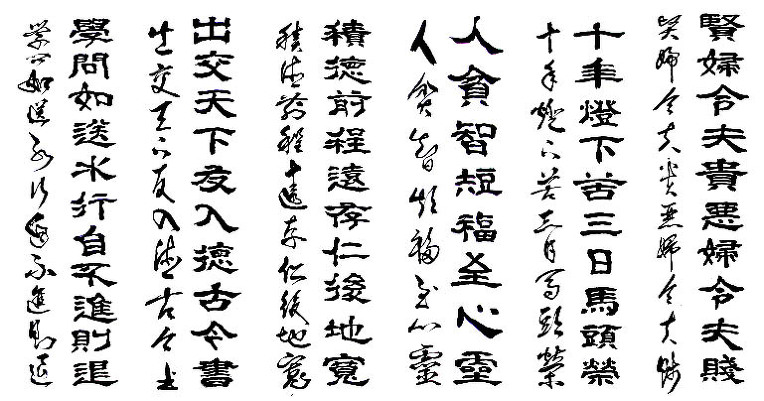 賢婦令夫貴惡婦令夫賤
賢婦令夫貴惡婦令夫賤
十年燈下苦三日馬頭榮
十年燈下苦三日馬頭榮
人貧智短福至心靈
人貧智短福至心靈
積德前程遠存仁後地寬
積德前程遠存仁後地寬
出交天下友入德古今書
出交天下友入德古今書
學問如逆水行舟不進則退
學問如逆水行舟不進則退